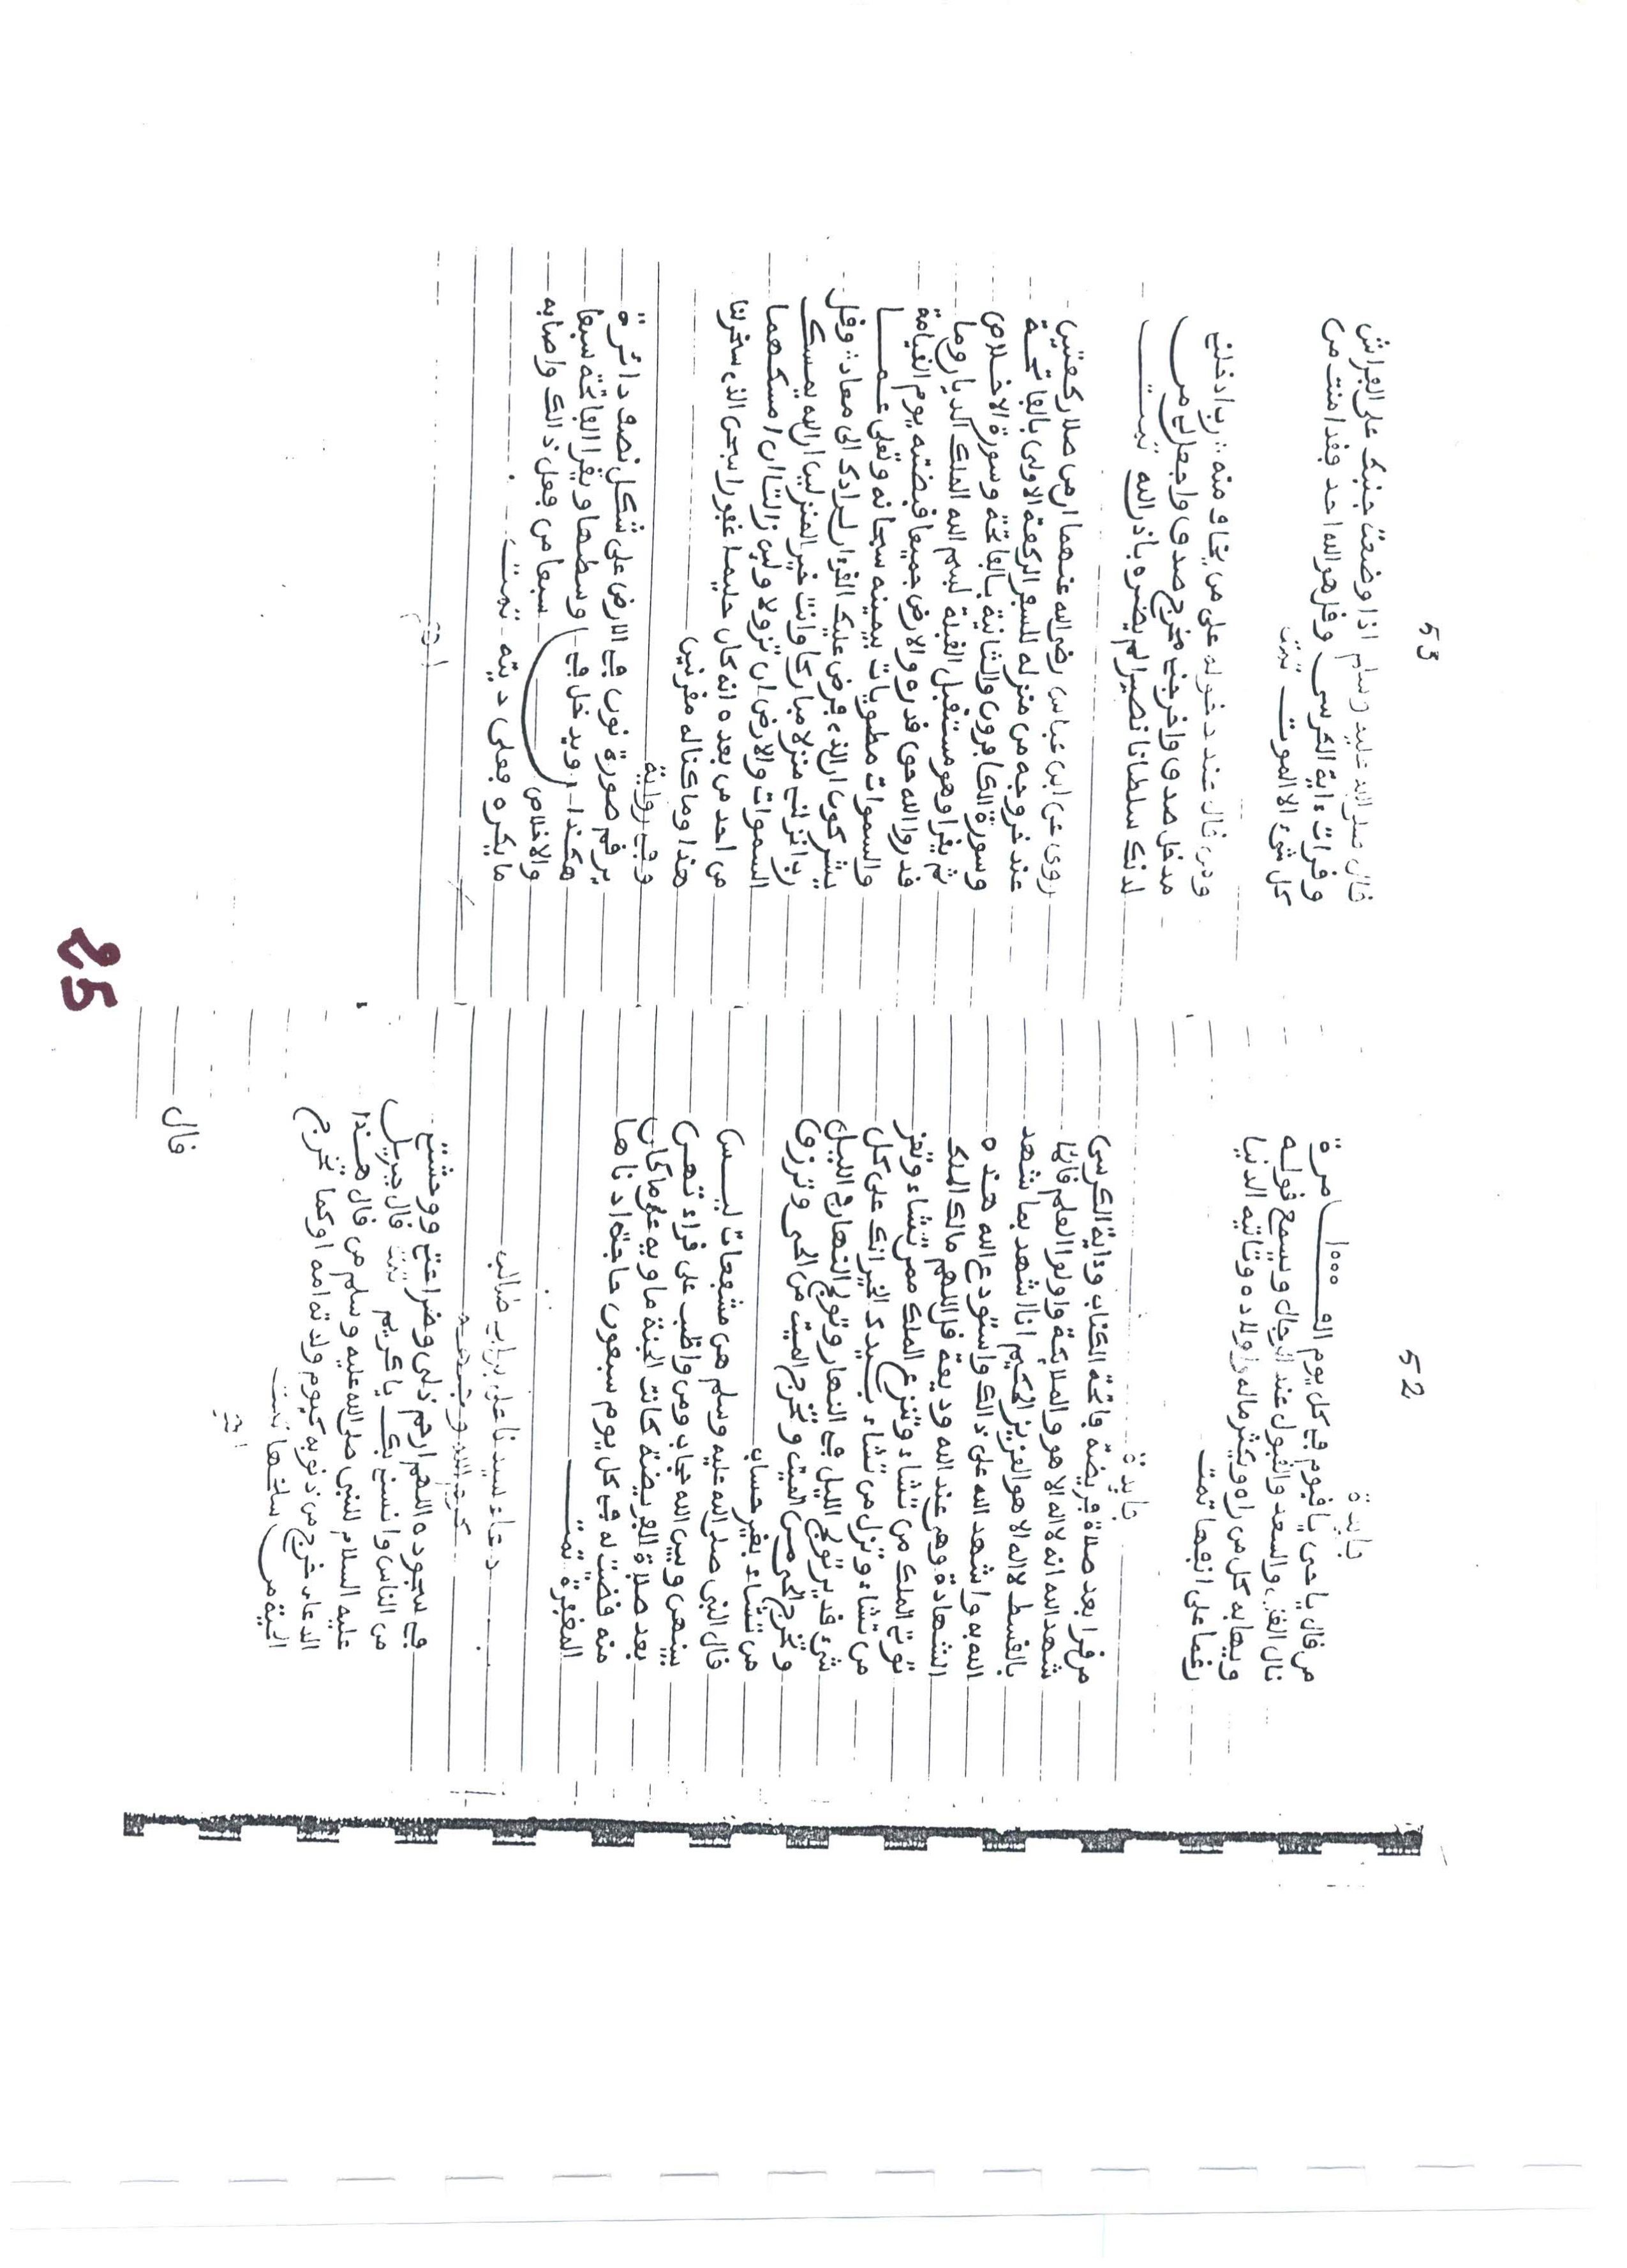 52
فايدة
من قال ياحي يا قيوم في كل يوم الف ١٠٠٠ مرة
نال الغنى والسعد والقبول عند الرجال ويسمع قوله
ويهابه كل من راه ويكثر ماله واولاده وتاتيه الدنيا
رغما على انفها تمت
فايدة
من قرا بعد صلاة فريضة فاتحة الكتاب وءاية الكرسى
شهد الله انه لا اله الا هو والملائكة واولوا العلم قائما
بالقسط لا اله الا هو العزيز الحكيم انا اشهد بما شهد
الله به واشهد الله على ذالك واستودع الله هذه
الشهادة وهي عند الله وديعة قل اللهم مالك الملك
توتي الملك من تشاء وتنزع الملك ممن تشاء وتعز
من تشاء وتذل من تشاء بيدك الخير انك على كل
شيء قدير تولج الليل في النهار وتولج النهار في الليل
وتخرج الحي من الميت وتخرج الميت من الحي وترزق
من تشاء بغير حساب
قال النبي صلى الله عليه وسلم هن مشفعات ليس
بينهن وبين الله حجاب ومن واظب على قراءتهن
بعد صلاة الفريضة كانت الجنة ماويه على ما كان
منه قضيت له في كل يوم سبعون حاجة ادناها
المغفرة تمت
دعاء سيدنا علي بن ابي طالب
كرم الله وجهه
في سجوده اللهم ارحم ذلي وضراعتي ووحشتي
من الناس وانسني بك يا كريم تمت قال جبريل
عليه السلام للنبي صلى الله عليه وسلم من قال هذا
الدعاء خرج من ذنوبه كيوم ولدته امه اوكما تخرج
الحية من سلخها تمت
قال
53
قال صلى الله عليه وسلم اذا وضعت جنبك على الفراش
وقرات ءاية الكرسى وقل هو الله احد فقد امنت من
كل شيء الا الموت تمت
ومن قال عند دخوله على من يخاف منه رب ادخلني
مدخل صدق واخرجني مخرج صدق واجعل لي من
لدنك سلطانا نصيرا لم يضره باذن الله تمت
روى عن ابن عباس رضي الله عنهما ان من صلا ركعتين
عند خروجه من منزله للسفر الركعة الاولى بالفاتحة
وسورة الكافرون والثانية بالفاتحة وسورة الاخلاص
ثم يقرا وهو مستقبل القبلة لبسم الله الملك الديان وما
قدروا الله حق قدره والارض جميعا قبضته يوم القيامة
والسموات مطويات بيمينه سبحانه وتعلى عما
يشركون ان الذي فرض عليك القرءان لرادك الى معاد وقل
رب انزلني منزلا مباركا وانت خير المنزلين ان الله يمسك
السموات والارض ان تزولا ولين زالتا ان امسكهما
من احد من بعده انه كان حليما غفورا سبحن الذي سخر لنا
هذا وما كنا له مقرنين
وفي رواية
يرقم صورة نون في الارض على شكل نصف دائرة
هكذا ن ويدخل في وسطها ويقرا الفاتحة سبعا
والاخلاص سبعا من فعل ذالك واصابه
ما يكره فعلي ديته تمت
25